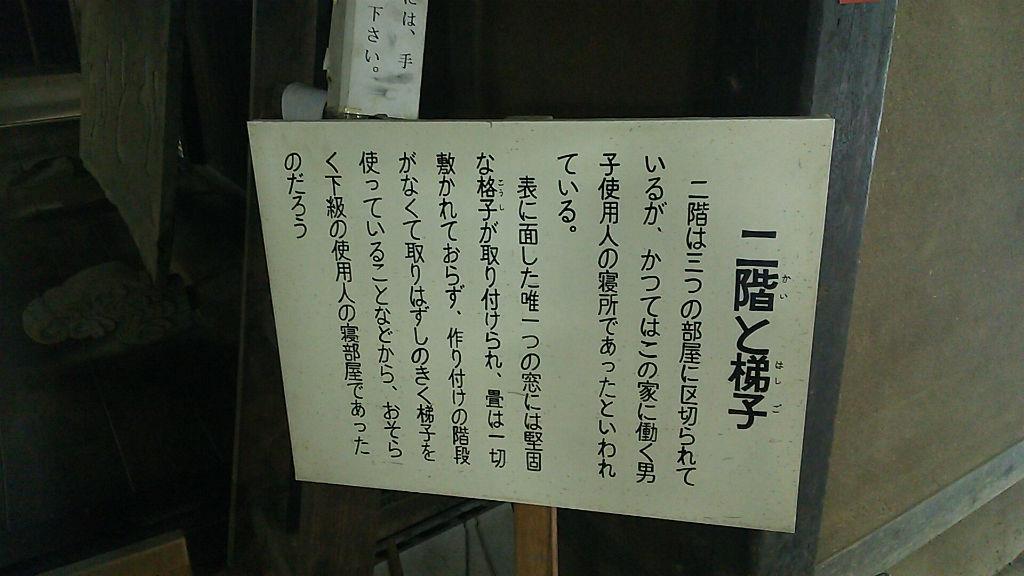 には、手
下さい。
二階と梯子
かい
はしご
二階は三つの部屋に区切られて
いるが、かつてはこの家に働く男
子使用人の寝所であったといわれ
ている。
表に面した唯一つの窓には堅固
な格子が取り付けられ、畳は一切
こうし
敷かれておらず、作り付けの階段
がなくて取りはずしのきく梯子を
使っていることなどから、おそら
く下級の使用人の寝部屋であった
のだろう